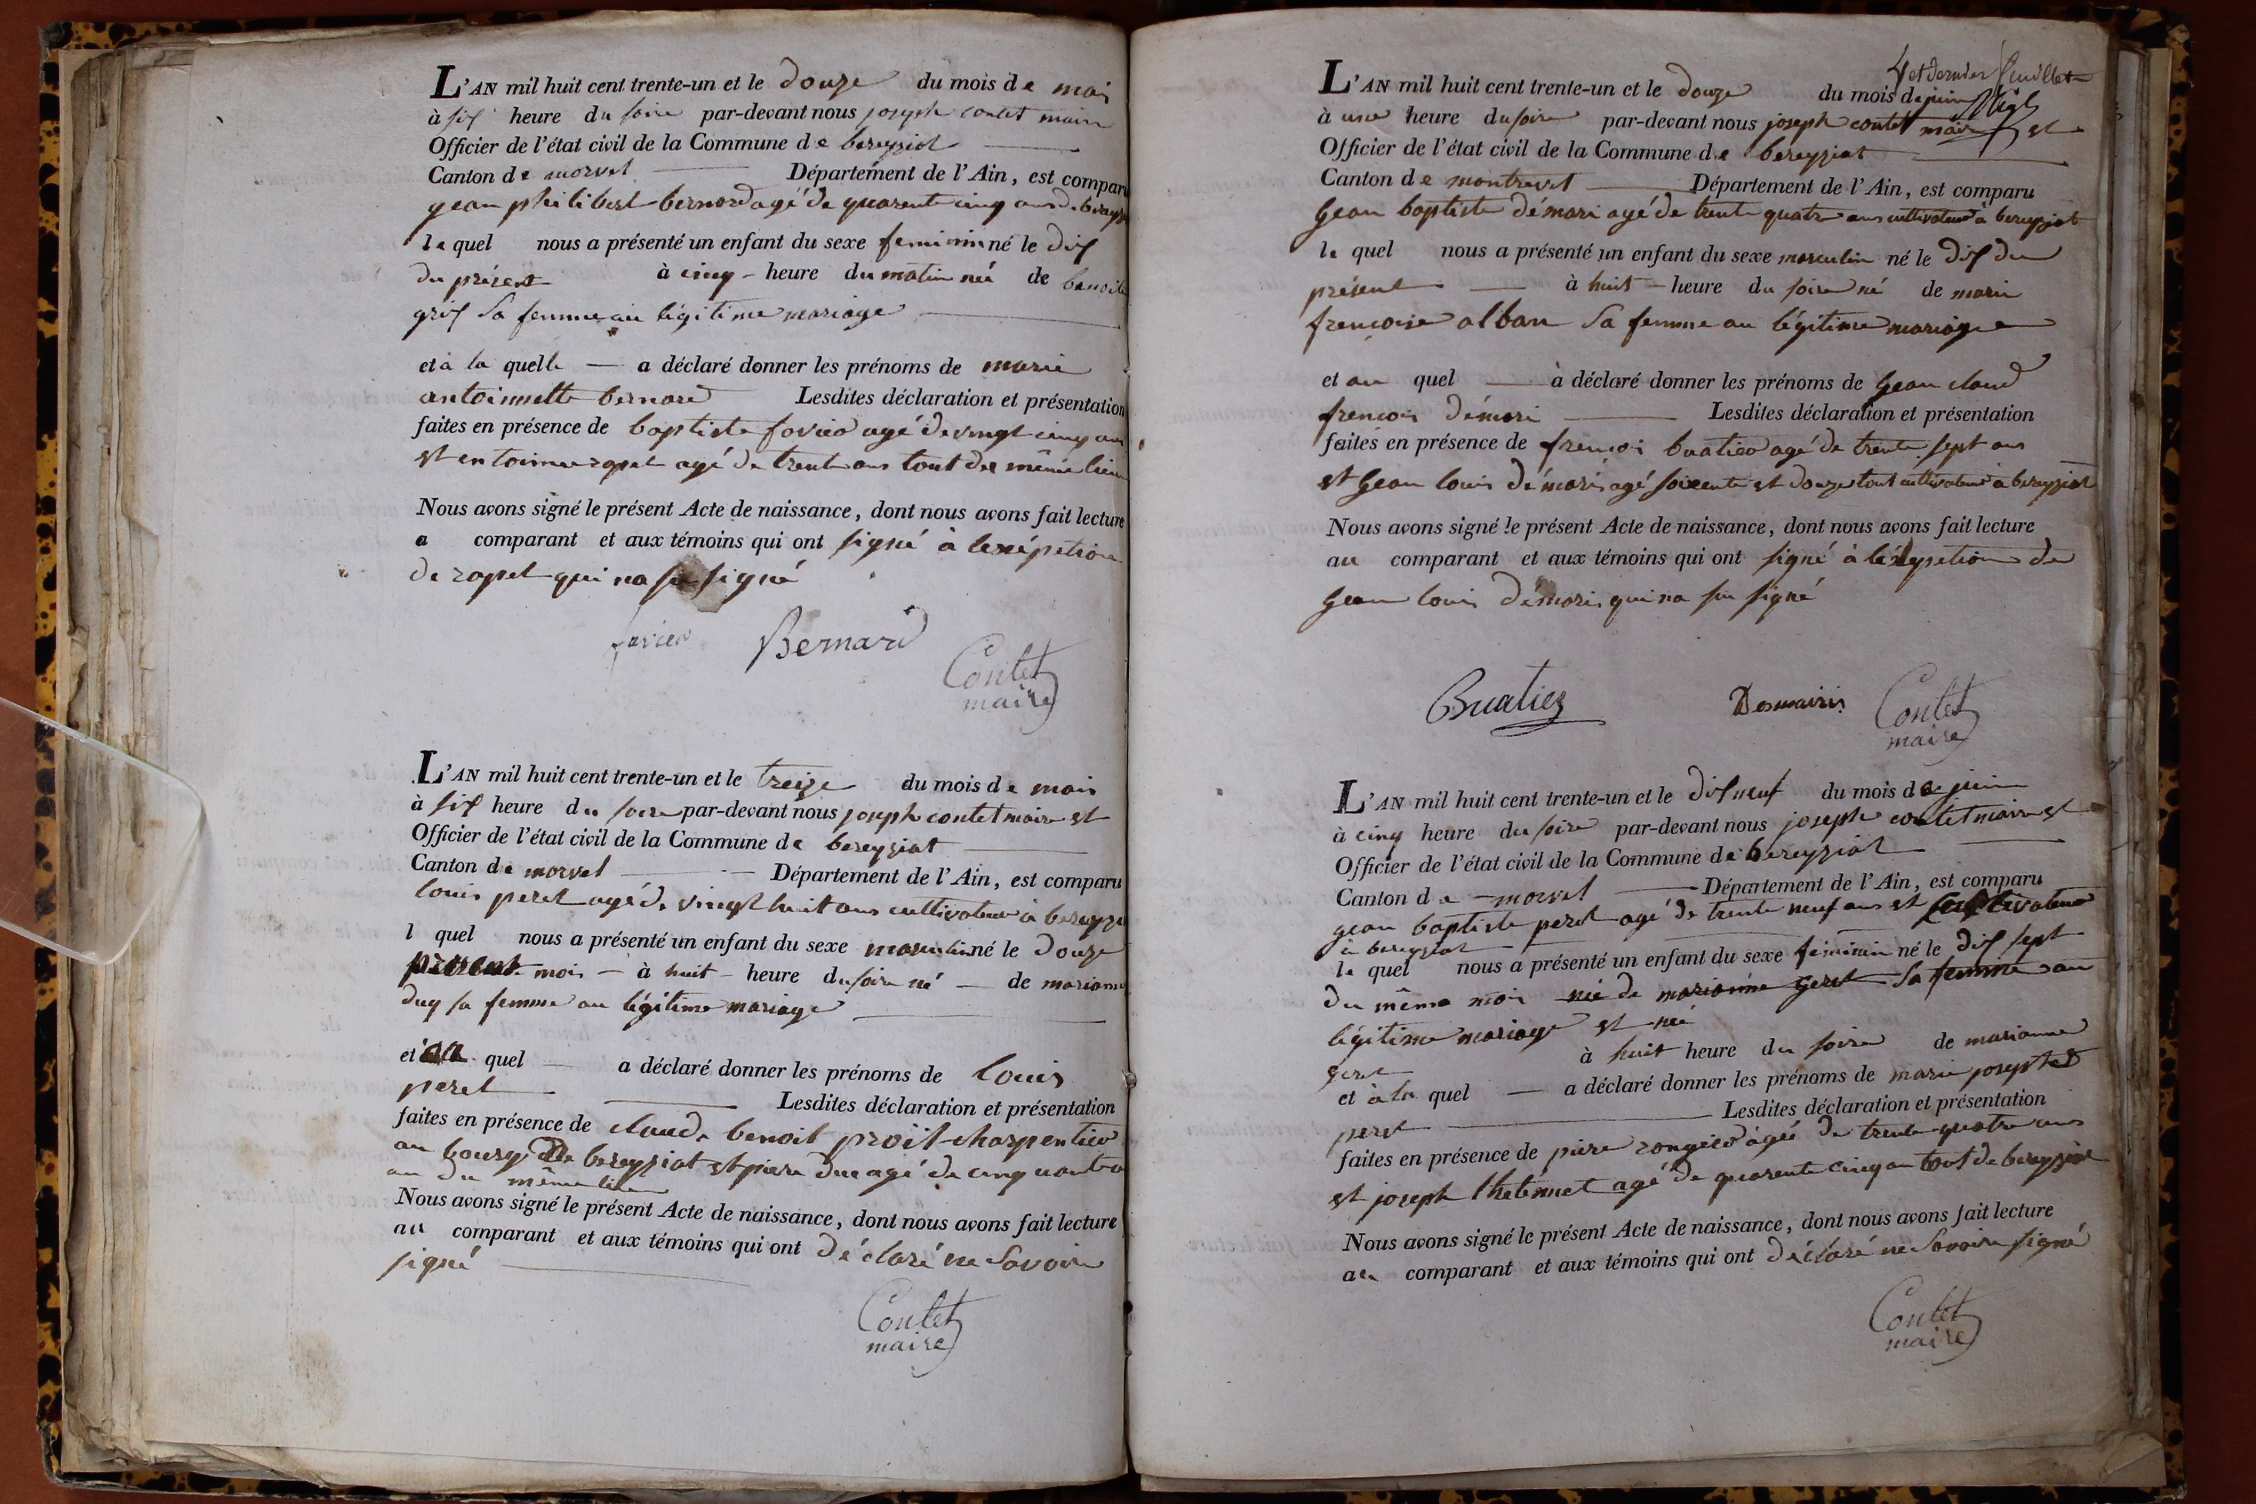 L'AN mil huit cent trente-un et le douze du mois de mai
à six heure du soire par-devant nous joseph contet maire
Officier de l'état civil de la Commune de bereyziat
Canton de morvel Département de l'Ain, est comparu
gean philibert bernard agé de quarente cinq ans de bereyziat
le quel nous a présenté un enfant du sexe feminin né le dix
du présent à cinq heure du matin née de benoite
grix sa femme au légitime mariage
et à la quelle a déclaré donner les prénoms de marie
antoinnette bernard Lesdites déclaration et présentation
faites en présence de baptiste favier agé de vingt cinq ans
et entoinne ropet agé de trent ans tout de même lieu
Nous avons signé le présent Acte de naissance, dont nous avons fait lecture
a comparant et aux témoins qui ont signé à
de ropet qui na su signé
favier Bernard
Contet
maire
L'AN mil huit cent trente-un et le treize du mois de mai
à six heure du soire par-devant nous joseph contet maire et
Officier de l'état civil de la Commune de bereyziat
Canton de morvel Département de l'Ain, est comparu
louis peret agé de vingt huit ans cultivateur à bereyzi
l quel nous a présenté un enfant du sexe masculin né le douze
présent mois à huit heure du soire né de marianne
duq sa femme au légitime mariage
et au quel a déclaré donner les prénoms de louis
peret Lesdites déclaration et présentation
faites en présence de claude benoit proït charpentier
au bourg de bereyziat et piere duc agé de cinquante
an du même lieu
Nous avons signé le présent Acte de naissance, dont nous avons fait lecture
au comparant et aux témoins qui ont déclaré ne savoire
signé
Contet
maire
4 et dernier feuillet
L'AN mil huit cent trente-un et le douze du mois de juin
à une heure du soire par-devant nous joseph contet maire et
Officier de l'état civil de la Commune de bereyziat
Canton de montrevel Département de l'Ain, est comparu
Gean baptiste démari agé de trente quatre ans cultivateur à bereyziat
le quel nous a présenté un enfant du sexe masculin né le dix du
présent à huit heure du soire né de marie
françoise alban sa femme au légitime mariage
et au quel à déclaré donner les prénoms de Gean claud
françois démari Lesdites déclaration et présentation
faites en présence de françoi buatier agé de trente sept ans
et Gean louis démaris agé soixente et douze tout cultivateur à bereyziat
Nous avons signé le présent Acte de naissance, dont nous avons fait lecture
au comparant et aux témoins qui ont signé à de
Gean louis démaris qui na su signé
Buatier Desmairis Contet
maire
L'AN mil huit cent trente-un et le dix neuf du mois de juin
à cinq heure du soire par-devant nous joseph contet maire et
Officier de l'état civil de la Commune de bereyziat
Canton de morvel Département de l'Ain, est comparu
gean baptiste peret agé de trente neuf ans et cultivateur
à bereyziat
le quel nous a présenté un enfant du sexe féminin né le dix sept
du même moi né de marianne geret sa femme au
légitime mariage et né
à huit heure du soire de marianne
geret
et à la quel a déclaré donner les prénoms de marie josepte
peret Lesdites déclaration et présentation
faites en présence de piere rongier agée de trente quatre ans
et joseph thetennet agé de quarente cinq an tout de bereyziat
Nous avons signé le présent Acte de naissance, dont nous avons fait lecture
au comparant et aux témoins qui ont déclaré ne savoire signé
Contet
maire